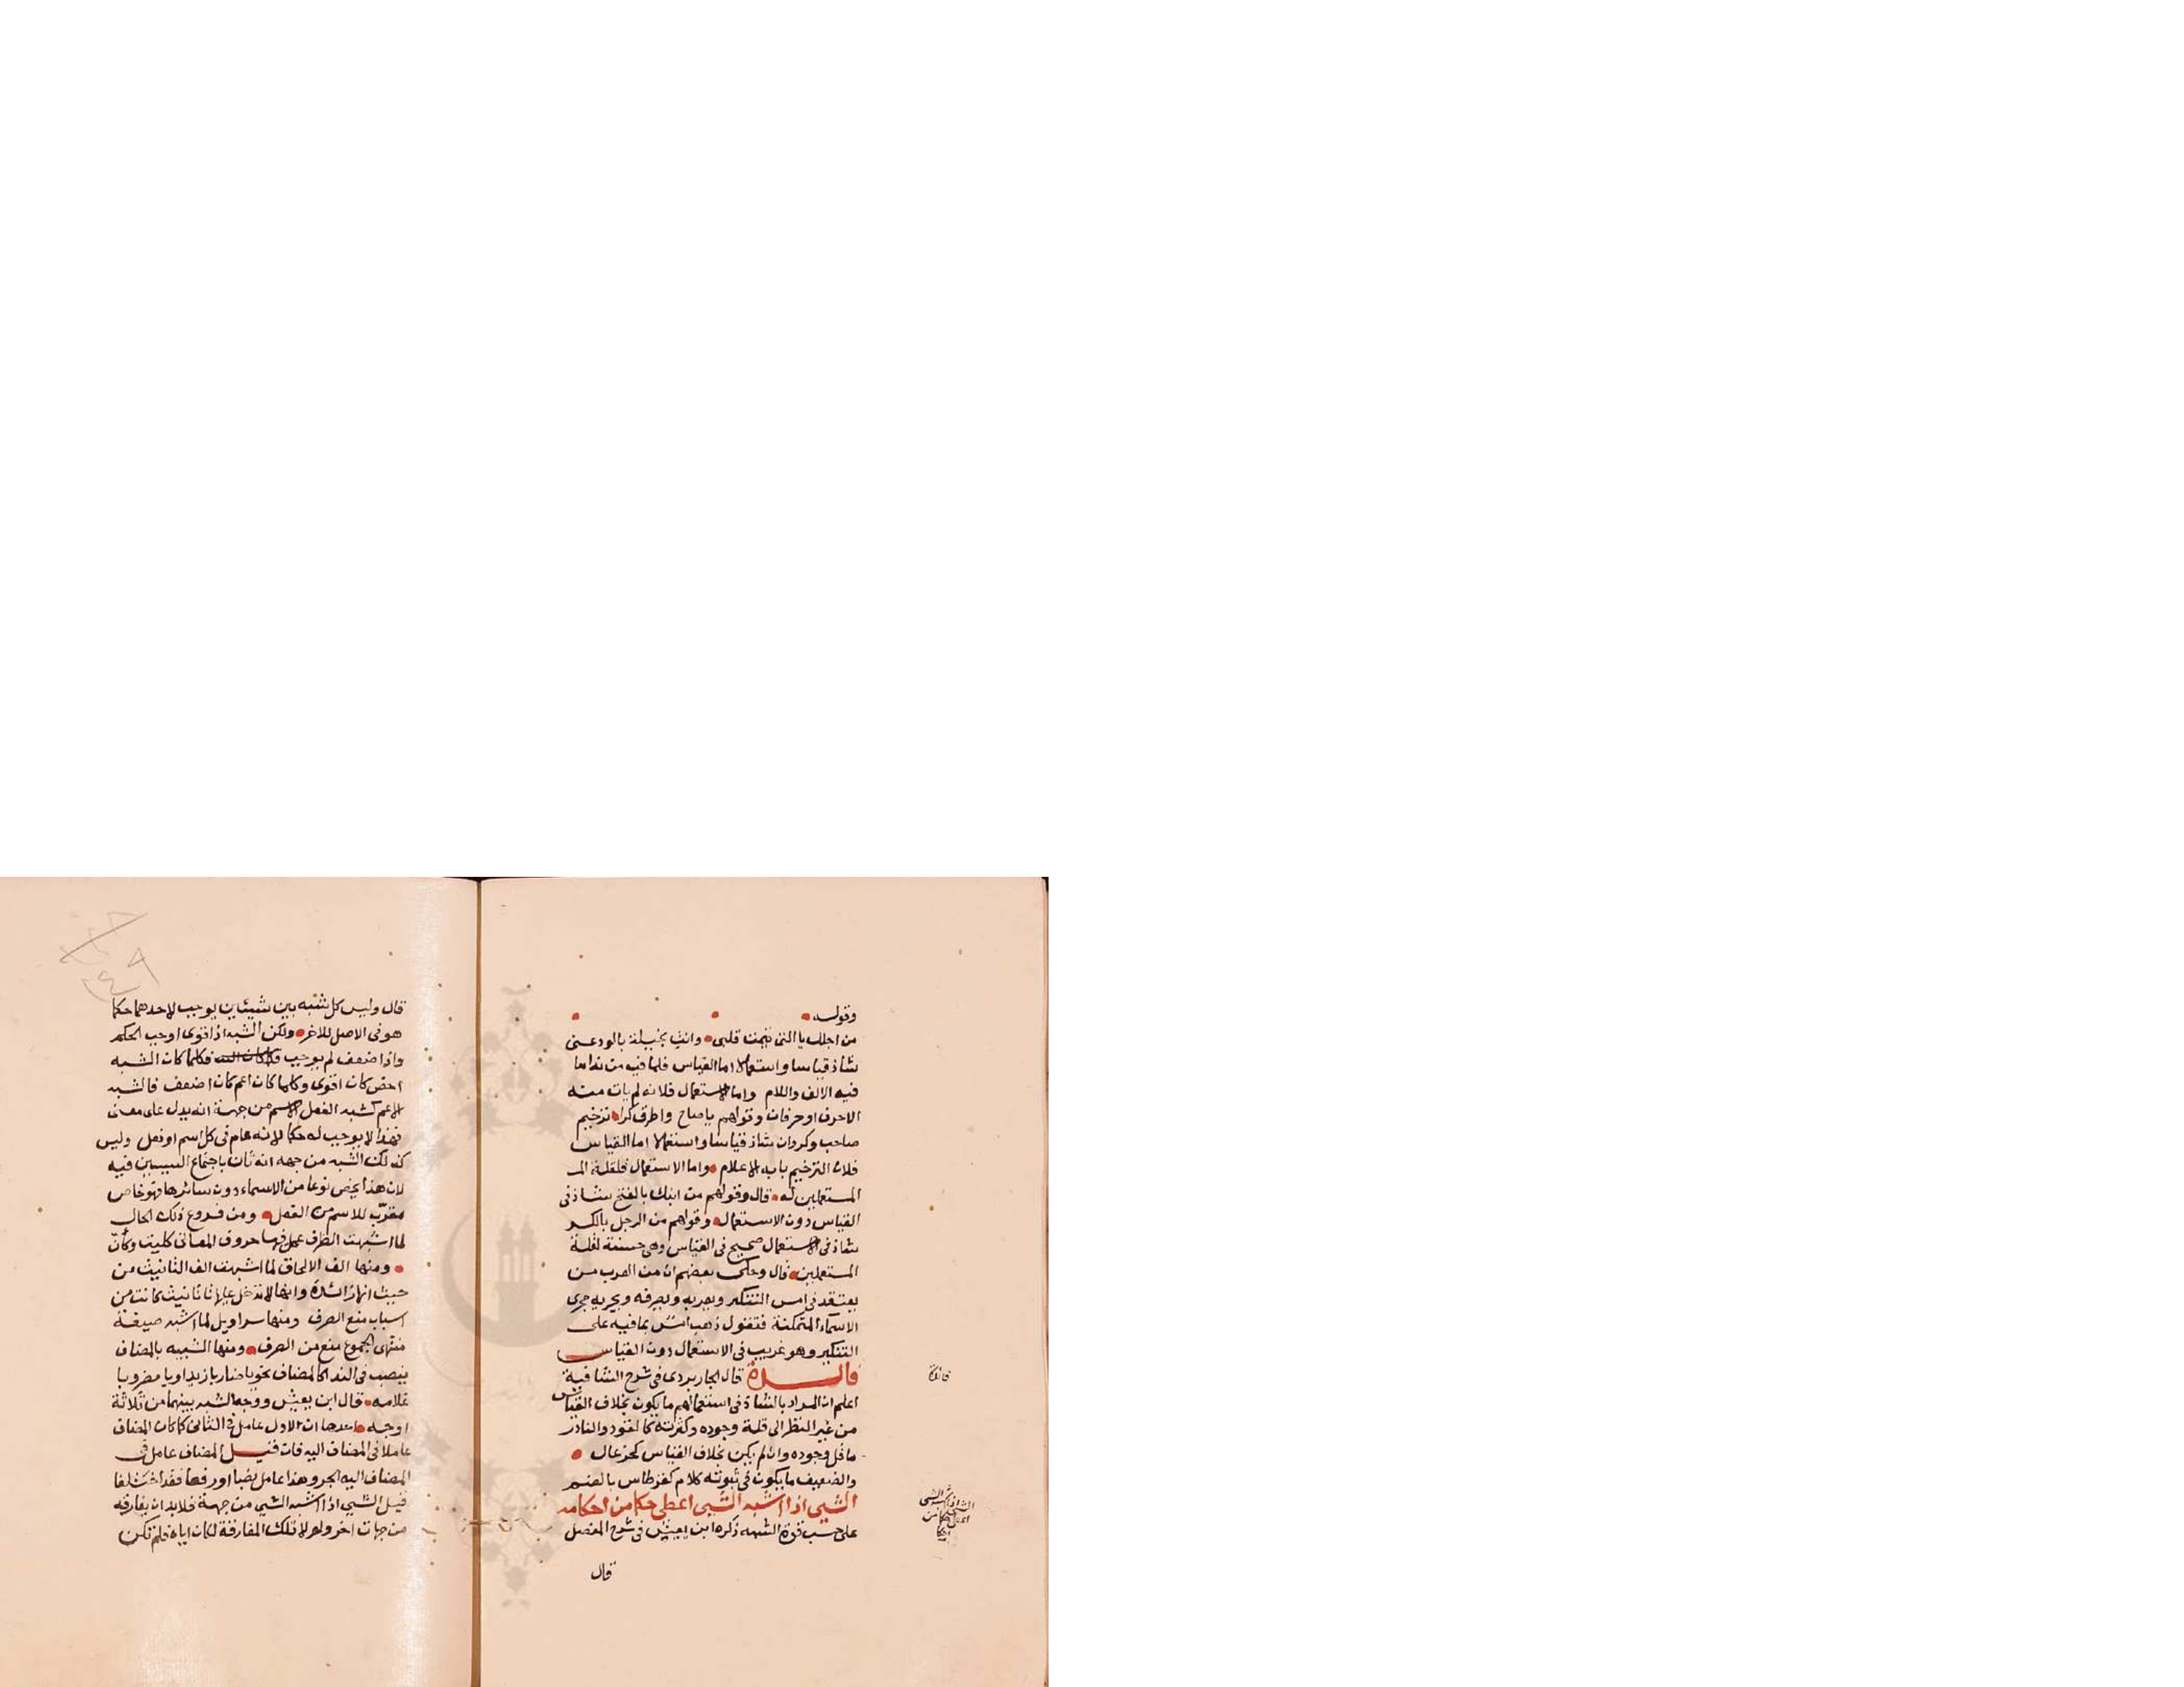 وقوله
من اجلك يا التى تيمت قلبى وانت بخيلة بالود عنى
شاذ قياسا واستعمالا اما القياس فلما فيه من نداء ما
فيه الالف واللام واما الاستعمال فلانه لم يات منه
الا حرف او حرفان وقولهم يا صاح واطرق كرا ترخيم
صاحب وكروان شاذ قياسا واستعمالا اما القياس
فلان الترخيم بابه الاعلام واما الاستعمال فلقلة المـ
المستعملين له قال وقولهم من ابنك بالفتح شاذ فى
القياس دون الاستعمال وقولهم من الرجل بالكسر
شاذ فى الاستعمال صحيح فى القياس وهى خبيثة لقلة
المستعملين قال وحكى بعضهم ان من العرب من
يعتقد فى امس التنكير ويعربه ويصرفه ويجريه مجرى
الاسماء المتمكنة فتقول ذهب امس بما فيه على
التنكير وهو غريب فى الاستعمال دون القياس
فائدة قال الجاربردى فى شرح الشافية
اعلم ان المراد بالشاذ فى استعمالهم ما يكون بخلاف القياس
من غير النظر الى قلة وجوده وكثرته كالقود والنادر
ما قل وجوده وان لم يكن بخلاف القياس كخزعال
والضعيف ما يكون فى ثبوته كلام كقرطاس بالضم
الشيى اذا اشبه الشيى اعطى حكما من احكامه
على حسب قوة الشبه ذكرها ابن يعيش فى شرح المفصل
قال
الشئ اذا اشبه الشئ
اعطى حكما من
احكا
قال وليس كل شبه بين شيئين يوجب لاحدهما حكما
هو فى الاصل للاخر ولكن الشبه اذا قوى اوجب الحكم
واذا ضعف لم يوجب فكلما كان الشبه
اخص كان اقوى وكلما كان اعم كان اضعف فالشبه
الاعم كشبه الفعل الاسم من جهة انه يدل على معنى
فهذا لا يوجب له حكما لانه عام فى كل اسم او فعل وليس
كذلك الشبه من جهه انه ثان باجتماع السببين فيه
لان هذا يخص نوعا من الاسماء دون سائرها فهو خاص
مقرب للاسم من الفعل ومن فروع ذلك الحال
لما اشبهت الظرف عمل فيها حروف المعانى كليت وكأن
ومنها الف الالحاق لما اشبهت الف التانيث من
حيث انها زائدة وانها لا تدخل عليها تا تانيث كانت من
اسباب منع الصرف ومنها سراويل لما اشبه صيغة
منتهى الجموع منع من الصرف ومنها الشبيه بالمضاف
ينصب فى الندا كالمضاف نحو يا ضاربا زيدا ويا مضروبا
غلامه قال ابن يعيش ووجه الشبه بينهما من ثلاثة
اوجه احدها ان الاول عامل فى الثانى كما كان المضاف
عاملا فى المضاف اليه فان قيل المضاف عامل فى
المضاف اليه الجر وهذا عامل نصبا او رفعا فقد اختلفا
قيل الشيى اذا اشبه الشيى من جهة فلا بد ان يفارقه
من جهات اخر ولولا تلك المفارقة لكان اياه فلم تكن